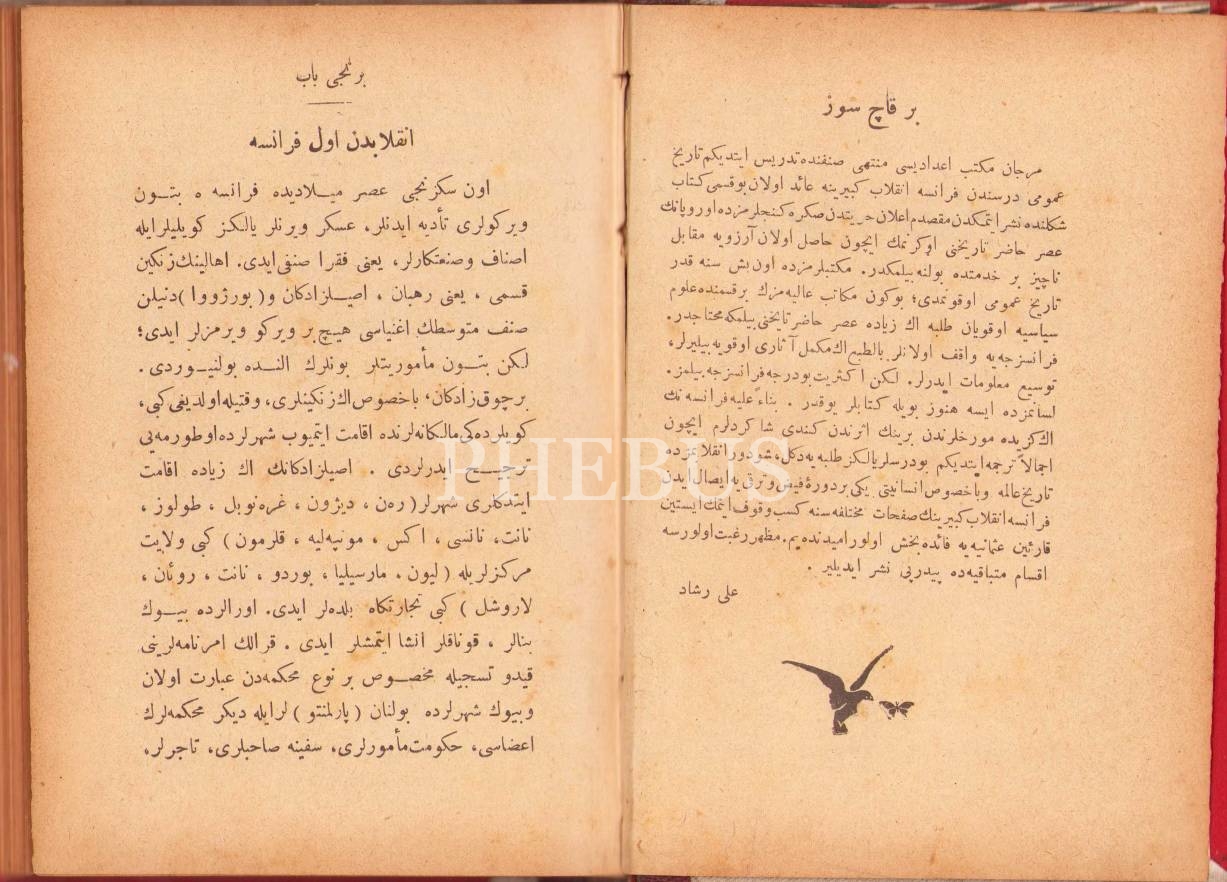 بر قاچ سوز
مرجان مكتب اعدادیسی منتهی صنفنده تدریس ایتدیكم تاریخ
عمومی درسندن فرانسه انقلاب كبیرینه عائد اولان بوقسمی كتاب
شكلنده نشر ایتمكدن مقصدم اعلان حریتدن صكره كنجلرمزده اوروپانك
عصر حاضر تاریخنی اوكرنمك ایچون حاصل اولان آرزویه مقابل
ناچیز بر خدمتده بولنه بیلمكدر. مكتبلرمزده اون بش سنه قدر
تاریخ عمومی اوقونمدی؛ بوكون مكاتب عالیه مزك برقسمنده علوم
سیاسیه اوقویان طلبه اك زیاده عصر حاضر تاریخنی بیلمكه محتاجدر.
فرانسزجه یه واقف اولانلر بالطبع اك مكمل آثاری اوقویه بیلیرلر،
توسیع معلومات ایدرلر. لكن اكثریت بودرجه فرانسزجه بیلمز.
لسانمزده ایسه هنوز بویله كتابلر یوقدر . بناءً علیه فرانسه نك
اك كزیده مورخلرندن برینك اثرندن كندی شاكردلرم ایچون
اجمالاً ترجمه ایتدیكم بودرسلر یالكز طلبه یه دكل، شو دور انقلابمزده
تاریخ عالمه وباخصوص انسانیتی یكی بر دورهٔ فیض و ترقی یه ایصال ایدن
فرانسه انقلاب كبیرینك صفحات مختلفه سنه كسب وقوف ایتمك ایستین
قارئین عثمانیه یه فائده بخش اولور امیدنده یم. مظهر رغبت اولورسه
اقسام متباقیه ده پیدرپی نشر ایدیلیر .
علی رشاد
برنجی باب
انقلابدن اول فرانسه
اون سكزنجی عصر میلادیده فرانسه ه بتون
ویركولری تأدیه ایدنلر، عسكر ویرنلر یالكز كویلیلرایله
اصناف وصنعتكارلر، یعنی فقرا صنفی ایدی. اهالینك زنكین
قسمی ، یعنی رهبان ، اصیلزادكان و( بورژووا ) دنیلن
صنف متوسطك اغنیاسی هیچ بر ویركو ویرمزلر ایدی؛
لكن بتون مأموریتلر بونلرك النده بولنیوردی.
برچوق زادكان، باخصوص اك زنكینلری، وقتیله اولدیغی كبی،
كویلرده كی مالكانه لرنده اقامت ایتمیوب شهرلرده اوطورمه یی
ترجیح ایدرلردی . اصیلزادكانك اك زیاده اقامت
ایتدكلری شهرلر ( ره ن ، دیژون ، غره نوبل ، طولوز ،
نانت، نانسی ، اكس ، مونپه لیه ، قلرمون ) كبی ولایت
مركزلریله ( لیون ، مارسیلیا ، بوردو ، نانت ، روئان ،
لاروشل ) كبی تجارتكاه بلده لر ایدی. اورالرده بیوك
بنالر ، قوناقلر انشا ایتمشلر ایدی . قرالك امرنامه لرینی
قیدو تسجیله مخصوص بر نوع محكمه دن عبارت اولان
وبیوك شهرلرده بولنان ( پارلمنتو ) لرایله دیكر محكمه لرك
اعضاسی، حكومت مأمورلری، سفینه صاحبلری، تاجرلر،
PHEBUS